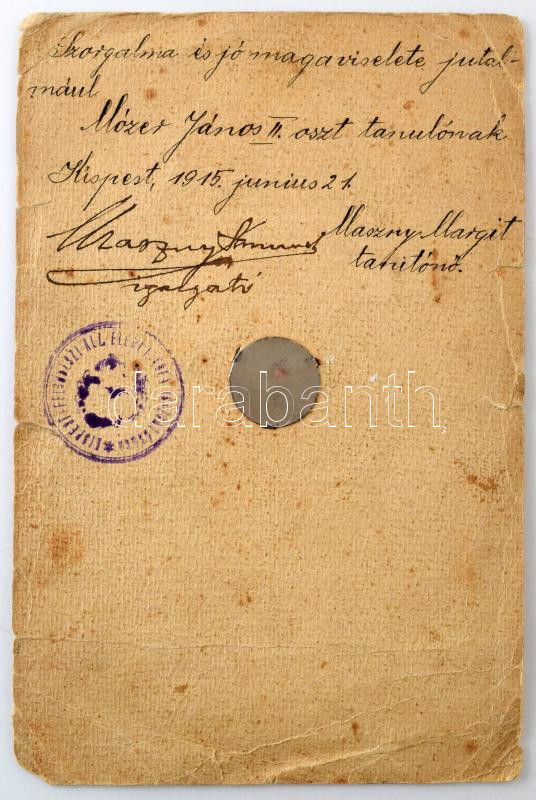 Szorgalma és jó magaviselete jutal-
mául
Mózer János II. oszt tanulónak
Kispest, 1915. junius 21.
Maszny Margit
tanítónő.
Maszny
igazgató
darabanth